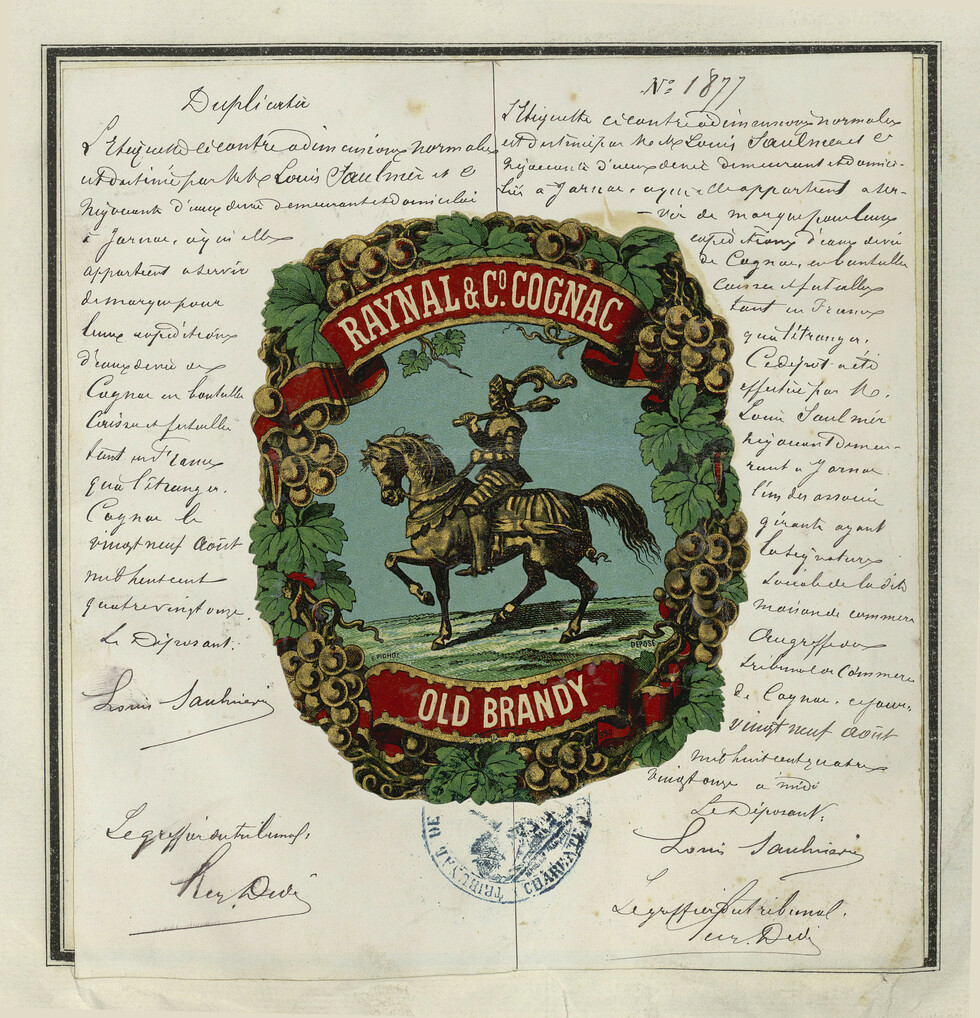 Duplicata
L'Etiquette ci contre a dimensions normales
est destiné par M. Mr Louis Saulnier et Cie
Négociants d'eaux de vie demeurant et domicilié
à Jarnac, à qui elle
appartient a servir
de marque pour
leurs expéditions
d'eaux de vie de
Cognac en bouteilles
Caisses et futailles
tant en France
qu'a l'étranger.
Cognac le
vingt neuf Août
mil huit cent
quatre vingt onze
Le Déposant.
Louis Saulnier
Le greffier du tribunal,
No 1877
L'Etiquette ci contre a dimensions normales
est destiné par M. Mr Louis Saulnier et Cie
Négociants d'eaux de vie demeurant et domici-
liés a Jarnac, a qui elle appartient a ser-
- vir de marque pour leurs
expéditions d'eaux de vie
de Cognac, en bouteilles
caisses et futailles
tant en France
qu'a l'étranger.
Ce dépot a été
effectué par M.
Louis Saulnier
négociant demeu-
rant a Jarnac
l'un des associés
gérants ayant
la signature
sociale de la dite
maison de commerce
Au greffe du
tribunal de Commerce
de Cognac, ce jour,
vingt neuf Août
mil huit cent quatre
vingt onze a midi
Le Déposant,
Louis Saulnier
Le greffier du tribunal.
RAYNAL & Co. COGNAC
E. PICHOT
DÉPOSÉ
OLD BRANDY
TRIBUNAL DE
CHARENTE